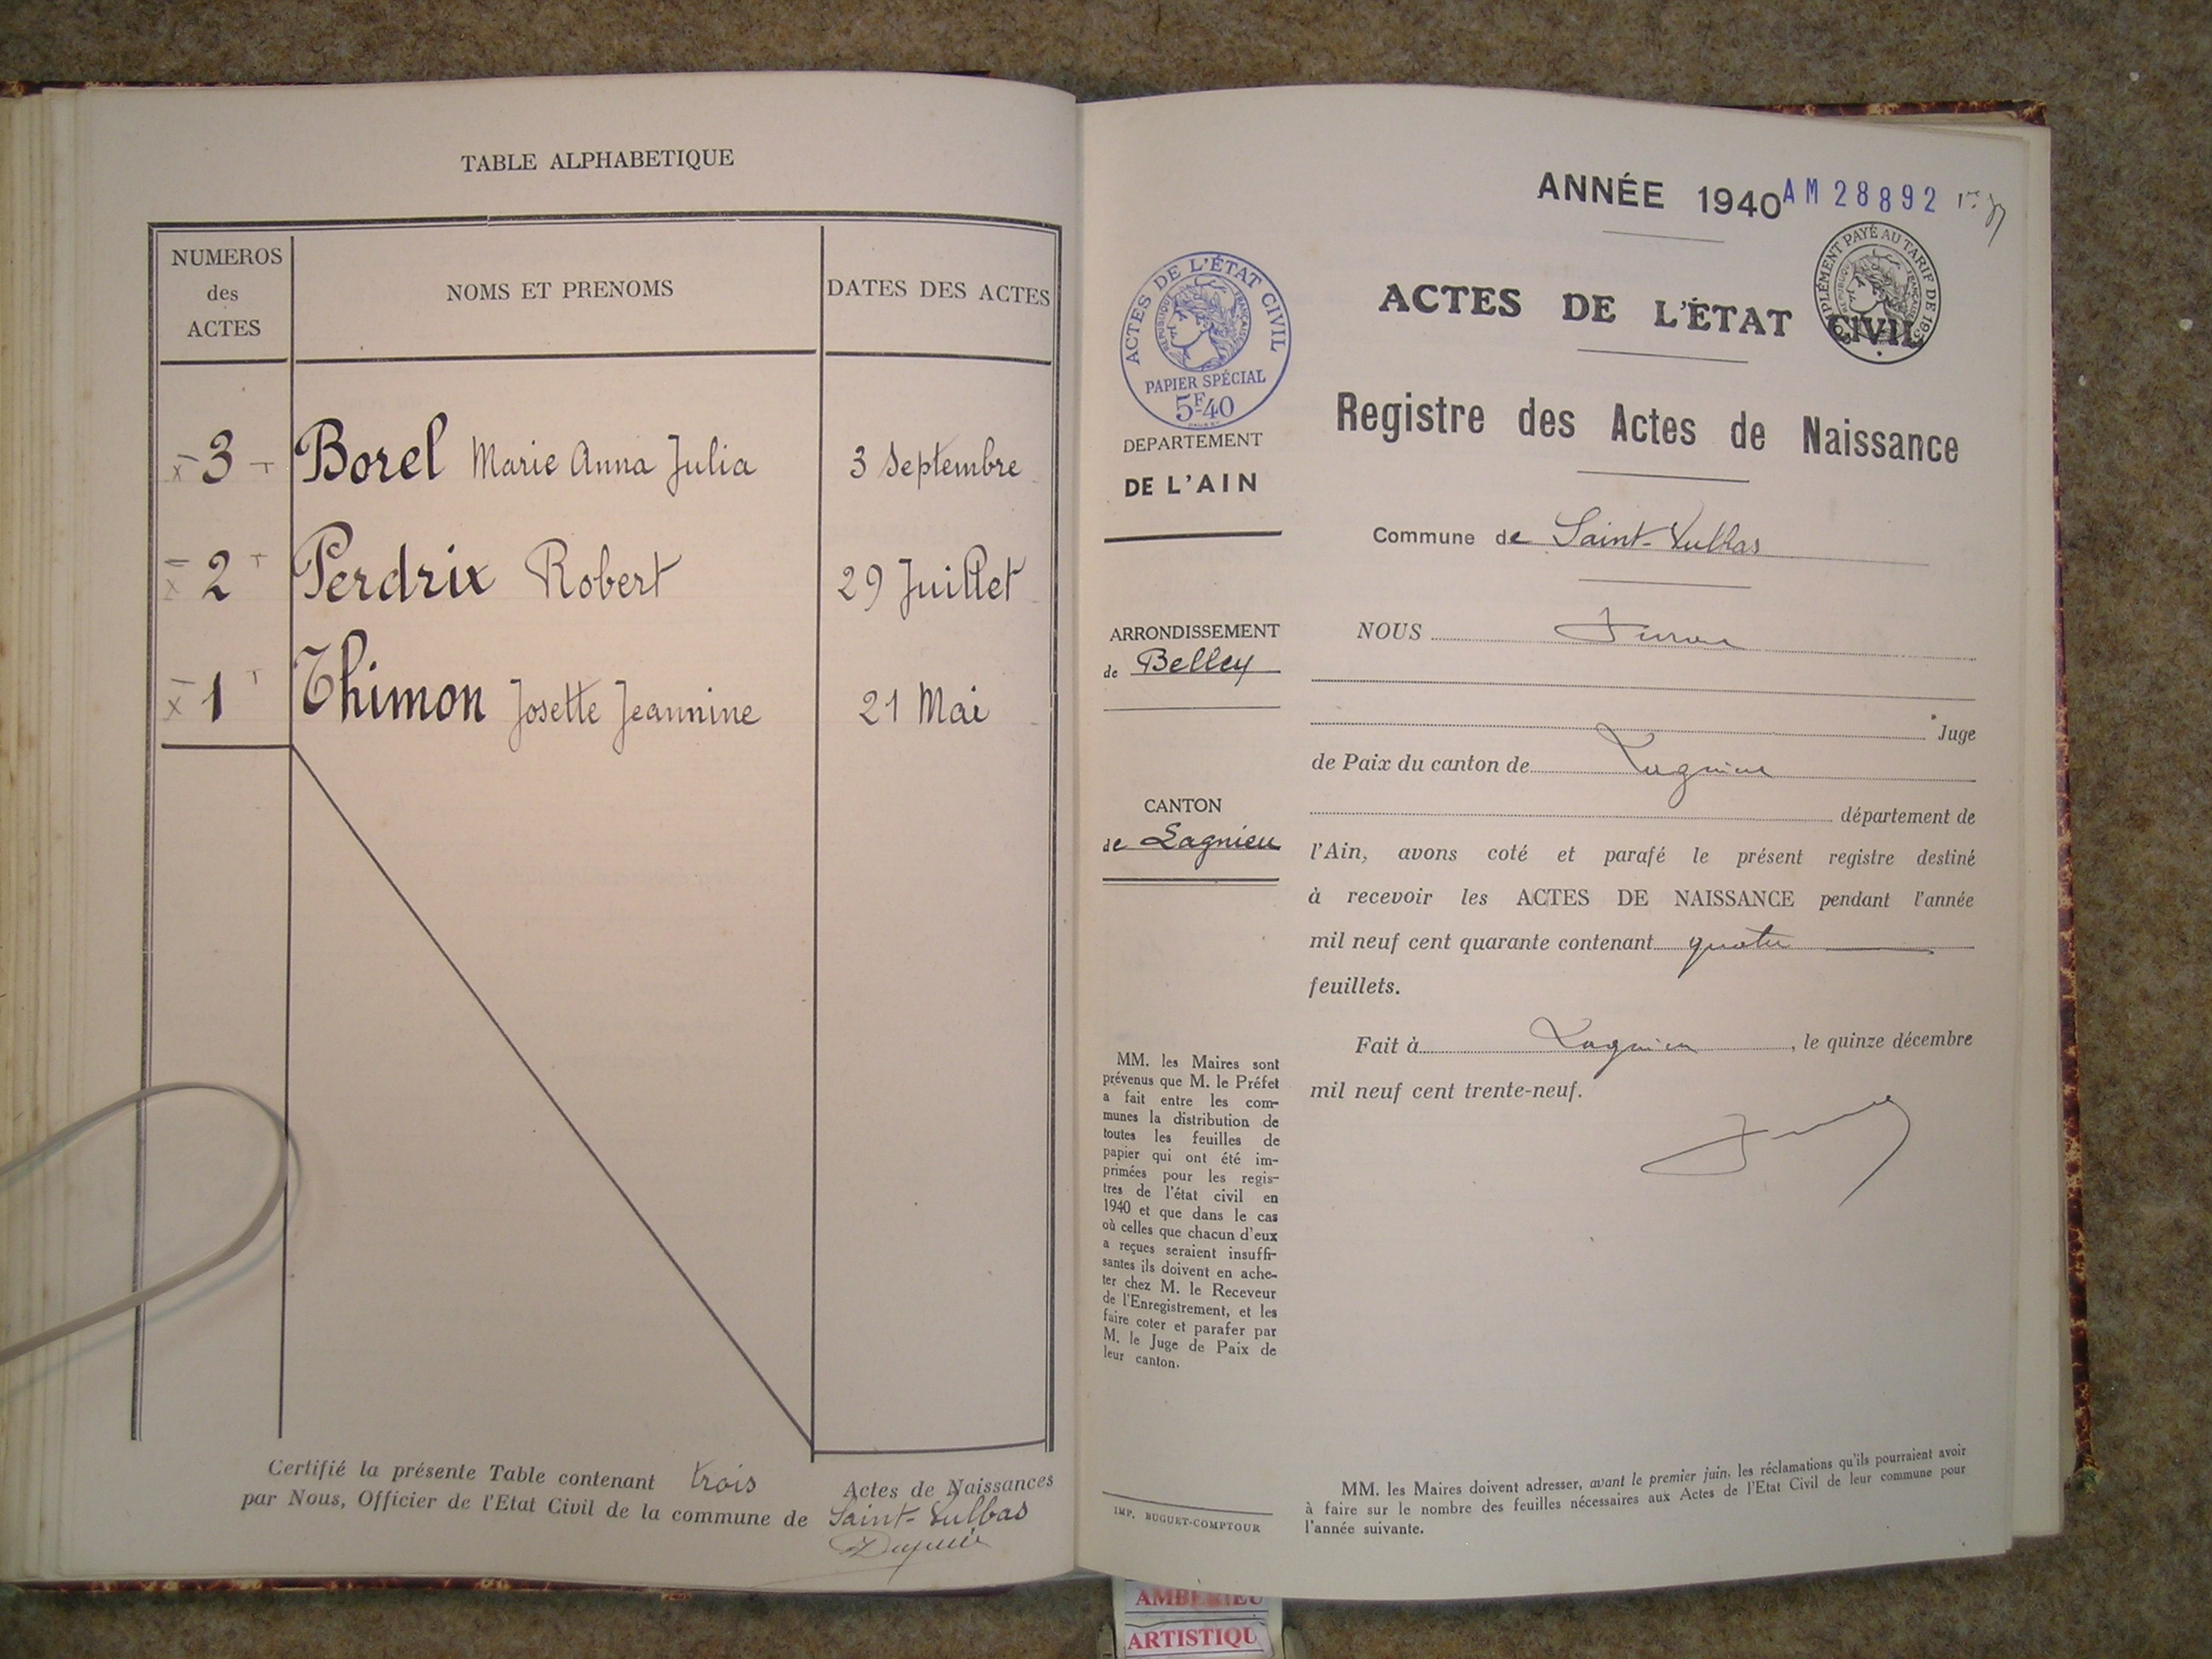 TABLE ALPHABETIQUE
NUMEROS des ACTES
NOMS ET PRENOMS
DATES DES ACTES
3 Borel Marie Anna Julia 3 Septembre
2 Perdrix Robert 29 Juillet
1 Thimon Josette Jeannine 21 Mai
Certifié la présente Table contenant trois Actes de Naissances
par Nous, Officier de l'Etat Civil de la commune de Saint-Vulbas
ANNÉE 1940 AM 28892
ACTES DE L'ÉTAT CIVIL
PAPIER SPÉCIAL
5F40
RÉPUBLIQUE FRANÇAISE
SUPPLÉMENT PAYÉ AU TARIF DE
ACTES DE L'ÉTAT CIVIL
Registre des Actes de Naissance
DEPARTEMENT
DE L'AIN
Commune de Saint-Vulbas
ARRONDISSEMENT
de Belley
CANTON
de Lagnieu
NOUS
Juge
de Paix du canton de Lagnieu
département de
l'Ain, avons coté et parafé le présent registre destiné
à recevoir les ACTES DE NAISSANCE pendant l'année
mil neuf cent quarante contenant quatre
feuillets.
Fait à Lagnieu, le quinze décembre
mil neuf cent trente-neuf.
MM. les Maires sont
prévenus que M. le Préfet
a fait entre les com-
munes la distribution de
toutes les feuilles de
papier qui ont été im-
primées pour les regis-
tres de l'état civil en
1940 et que dans le cas
où celles que chacun d'eux
a reçues seraient insuffi-
santes ils doivent en ache-
ter chez M. le Receveur
de l'Enregistrement, et les
faire coter et parafer par
M. le Juge de Paix de
leur canton.
IMP. BUGUET-COMPTOUR
MM. les Maires doivent adresser, avant le premier juin, les réclamations qu'ils pourraient avoir
à faire sur le nombre des feuilles nécessaires aux Actes de l'Etat Civil de leur commune pour
l'année suivante.
AMBERIEU
ARTISTIQU